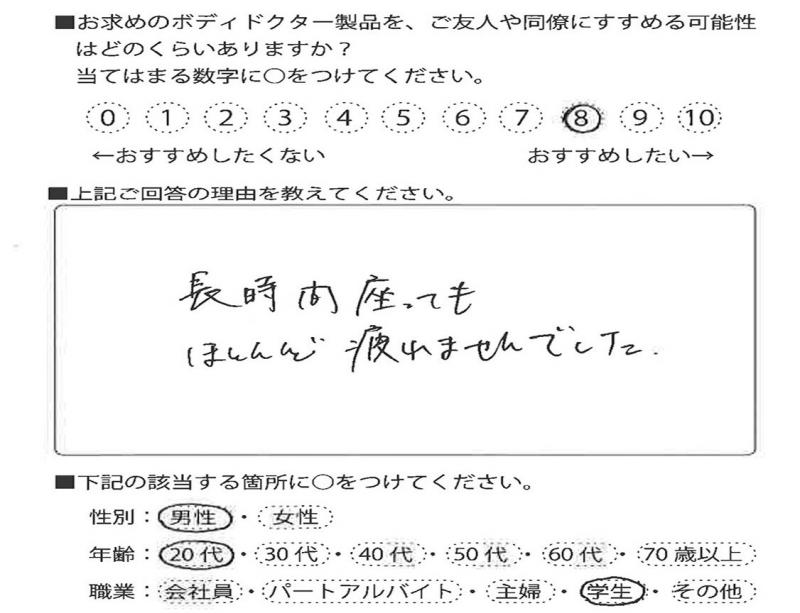 ■お求めのボディドクター製品を、ご友人や同僚にすすめる可能性
はどのくらいありますか？
当てはまる数字に○をつけてください。
0 1 2 3 4 5 6 7 8 9 10
←おすすめしたくない おすすめしたい→
■上記ご回答の理由を教えてください。
長時間座っても
ほとんど疲れませんでした.
■下記の該当する箇所に○をつけてください。
性別：男性・女性
年齢：20代・30代・40代・50代・60代・70歳以上
職業：会社員・パートアルバイト・主婦・学生・その他